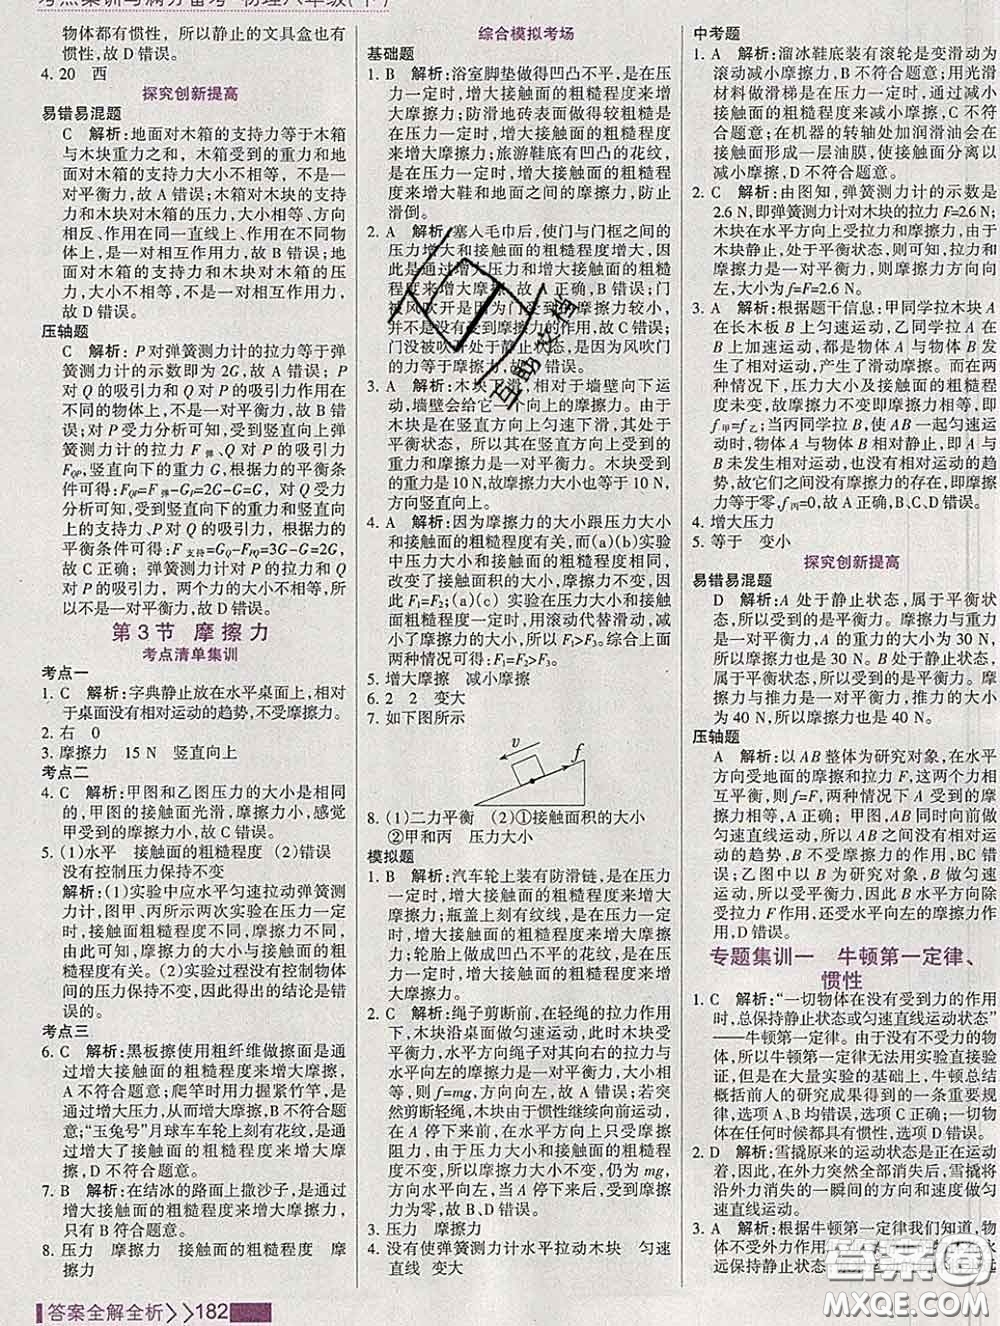 考点集训与满分备考 物理八年级(下)
物体都有惯性,所以静止的文具盒也有
惯性,故 D 错误。
4. 20 西
探究创新提高
易错易混题
C 解析:地面对木箱的支持力等于木箱
与木块重力之和,木箱受到的重力和地
面对木箱的支持力大小不相等,不是一
对平衡力,故 A 错误;木箱对木块的支持
力和木块对木箱的压力,大小相等、方向
相反、作用在同一直线上、作用在不同物
体上,是一对相互作用力,故 C 正确;地
面对木箱的支持力和木块对木箱的压
力,大小不相等,不是一对平衡力,故 B、
D 错误。
压轴题
C 解析:P 对弹簧测力计的拉力等于弹
簧测力计的示数即为 2G,故 A 错误;P
对 Q 的吸引力和 Q 对 P 的吸引力作用在
不同的物体上,不是一对平衡力,故 B 错
误;对 P 受力分析可知,受到竖直向上弹
簧测力计的拉力 F弹、Q 对 P 的吸引力
FQP、竖直向下的重力 G,根据力的平衡条
件可得:FQP=F弹-G=2G-G=G,对 Q 分
析可知,受到竖直向下的重力、竖直向上
的支持力、P 对 Q 的吸引力,根据力的平
衡条件可得:F支持=GQ-FPQ=3G-G=
2G,故 C 正确;弹簧测力计对 P 的拉力和
Q 对 P 的吸引力,两个力的大小不相等,所
以不是一对平衡力,故 D 错误。
第 3 节 摩擦力
考点清单集训
考点一
1. C 解析:字典静止放在水平桌面上,相对
于桌面没有相对运动的趋势,不受摩擦力。
2. 右 0
3. 摩擦力 15 N 竖直向上
考点二
4. C 解析:甲图和乙图压力的大小是相同
的,甲图的接触面光滑,摩擦力小,感觉
甲受到的摩擦力小,故 C 错误。
5. (1)水平 接触面的粗糙程度 (2)错误
没有控制压力保持不变
解析:(1)实验中应水平匀速拉动弹簧测
力计,图甲、丙所示两次实验在压力一定
时,接触面粗糙程度不同,摩擦力不同,
由此可知,摩擦力的大小与接触面的粗
糙程度有关;(2)实验过程没有控制物体
压力保持不变,因此得出的结论是错
误的。
考点三
6. C 解析:黑板擦使用粗纤维做擦面是通
过增大接触面的粗糙程度来增大摩擦,
A 不符合题意;爬竿时用力握紧竹竿,是
增大压力,从而增大摩擦,B 不符合题
意;“玉兔号”月球车车轮凹凸不平的花
纹,增大了接触面的粗糙程度,增大了摩
擦力,D 不符合题意。
7. B 解析:在结冰的路面上撒沙子,是通过
增大接触面的粗糙程度来增大摩擦力,
只有 B 符合题意。
8. 压力 摩擦力 接触面的粗糙程度 摩
擦力
综合模拟考场
基础题
1. B 解析:浴室脚垫做得凹凸不平,是在压
力一定时,增大接触面的粗糙程度来增
大摩擦力;防滑地砖表面做得较粗糙是
在压力一定时,增大接触面的粗糙程度
来增大摩擦力;旅游鞋底有凹凸的花纹,
是在压力一定时,增大接触面的粗糙程
度来增大鞋和地面之间的摩擦力,防止
滑倒。
2. A 解析:塞入毛巾后,使门与门框之间的
压力增大和接触面的粗糙程度增大,因
此是通过增大压力和增大接触面的粗糙
程度来增大摩擦,故 A 正确,B 错误;门
被风吹开是因为门受到的摩擦力较小,
并不是没有受到摩擦力的作用,故 C 错误;
门没被吹开处于静止状态,是因为风吹门
的力等于摩擦力,故 D 错误。
3. A 解析:木块下滑,相对于墙壁向下运
动,墙壁会给它一个向上的摩擦力。由于
木块是在竖直方向上匀速下滑,其处于
平衡状态,所以其在竖直方向上受到的
重力和摩擦力的大小相等。木块受到的
重力为 10 N,故摩擦力的大小也等于 10 N,
方向竖直向上。
4. A 解析:因为摩擦力的大小跟压力大小
和接触面的粗糙程度有关,而(a)(b)实验
中压力大小和接触面的粗糙程度相同,
改变了接触面积的大小,摩擦力不变,因
此 F1=F2;(a)(c)实验在压力大小和接触
面粗糙程度相同时,用滚动代替滑动,减
小了摩擦力的大小,所以 F1>F3。综合上面
两种情况可得:F1=F2>F3。
5. 增大摩擦 减小摩擦
6. 2 2 变大
7. 如下图所示
v
f
8. (1)二力平衡 (2)①接触面积的大小
②甲和丙 压力大小
模拟题
1. B 解析:汽车轮上装有防滑链,是在压力
一定时,增大接触面的粗糙程度来增大
摩擦力;瓶盖上刻有纹线,是在压力一定
时,增大接触面的粗糙程度来增大摩擦
力;轮胎上做成凹凸不平的花纹,是在压
力一定时,增大接触面的粗糙程度来增
大摩擦力。
2. C 解析:绳子剪断前,在轻绳的拉力作用
下,木块沿桌面做匀速运动,此时木块受
力平衡,水平方向绳子对其向右的拉力与
水平桌面对其向左的摩擦力大小相等,
即 f=mg,方向向左,故 A 错误;若突
然剪断轻绳,木块由于惯性继续向前运动,
在 A 停下来前,在水平方向上只受摩擦
阻力,由于压力大小和接触面粗糙程度
不变,所以摩擦力大小不变,仍为 mg,方
向向左;当 A 停下来后,受到水平方向的
力为零,故 B、D 错误。
3. 压力 摩擦力
4. 没有使弹簧测力计水平拉动木块 匀速
直线 变大
中考题
1. A 解析:溜冰鞋底装有滚轮是变滑动为
滚动减小摩擦力,B 不符合题意;用光滑
材料做滑梯是在压力一定时,减小接触
面的粗糙程度来减小摩擦力,C 不符
合题意;在机器的转轴处加润滑油会在
接触面形成一层油膜,使接触面分离以
减小摩擦,D 不符合题意。
2. C 解析:由图知,弹簧测力计的示数是
2.6 N,即弹簧测力计对木块的拉力 F=2.6 N;
木块静止,处于平衡状态,则可知,拉力和
摩擦力是一对平衡力,故可知摩擦力的
大小:f=F=2.6 N。
3. A 解析:根据题干信息:甲同学拉木块 A
在长木板 B 上匀速运动,乙同学拉物体 A
在 B 上加速运动,都是物体 A 与物体 B
发生了相对运动,产生了滑动摩擦。而在两
种情况下,压力大小及接触面的粗糙程
度未变,故摩擦力不变即摩擦力相等,即
f甲=f乙;当丙同学拉物体 AB 一起匀速运
动时,物体 A 与物体 B 相对静止,即 A 与
B 未发生相对运动,也没有相对运动的趋
势,故它们之间没有摩擦力的存在,即摩擦
力等于零,f丙=0,故 A 正确,B、C、D 错误。
4. 增大压力
5. 等于 变小
探究创新提高
易错易混题
D 解析:A 处于静止状态,属于平衡状
态,所以受到的力是平衡力,A 的重力与
支持力是一对平衡力,A 的重力为 30 N,
所以支持力也是 30 N。B 处于静止状态,
属于平衡状态,所以受到的力是平衡力,
摩擦力与推力是一对平衡力,推力的大小
为 40 N,所以摩擦力也是 40 N。
压轴题
A 解析:以 AB 整体为研究对象,在水平
方向受地面的摩擦力和拉力 F,这两个力相
互平衡,则 f=F,两种情况下地面对 B 的
摩擦力相等,A 正确;甲图,AB 同时向前做
匀速直线运动,所以 AB 之间没有相对
运动,所以 AB 之间没有摩擦力,BC 错
误;乙图中以 B 为研究对象,因为 B 做匀速
运动,所以受力平衡,因此 B 水平方向除
受拉力 F 作用,还受水平向左的摩擦力作
用,D 错误。
专题集训一 牛顿第一定律、
惯性
1. C 解析:“一切物体在没有受到力的作用
时,总保持静止状态或匀速直线运动状态”
——牛顿第一定律。由于没有不受力的物
体,所以牛顿第一定律无法用实验直接验
证,但是在大量实验的基础上,牛顿总结
概括前人的研究成果得到的一条重要规
律,选项 A、B 均错误,选项 C 正确;一切物体
在任何时候都具有惯性,选项 D 错误。
2. D 解析:雪撬原来的运动状态是正在运动
着,因此,在外力突然全部消失后,雪撬将
沿外力消失的一瞬间的方向和速度做匀
速直线运动。
3. A 解析:根据牛顿第一定律我们知道,物体
不受外力作用
答案全解全析>>182
互助文档
答案圈
MXQE.COM